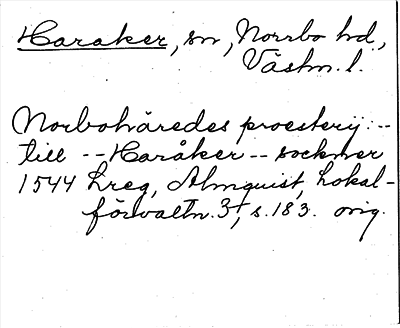 Haraker, sn, Norrbo hd.,
Västm. l.
Norbohäredes proestery: --
till -- Haråker -- sockner
1544 Lreg, Almquist, Lokal-
förvaltn. 3, s. 183. orig.